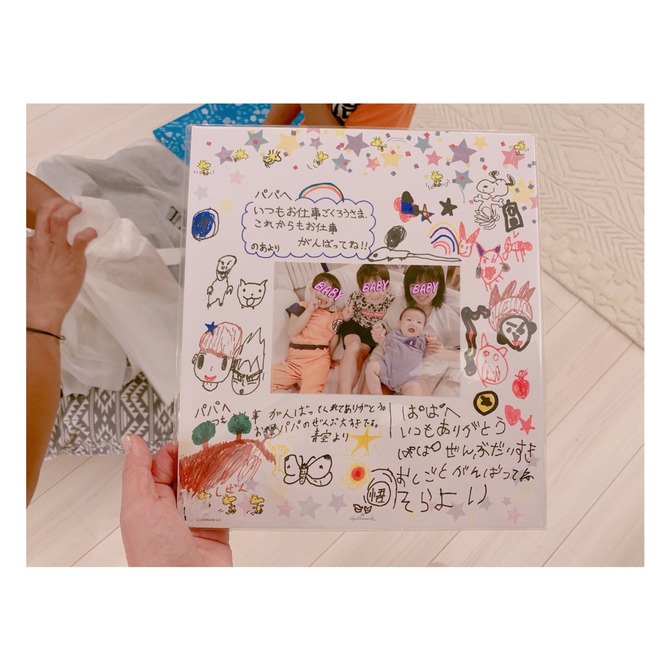 パパへ
いつもお仕事ごくろうさま。
これからもお仕事
がんばってね!!
のあより
BABY
BABY
BABY
パパへ
いつも
お仕事がんばってくれてありがとう。
パパのぜんぶ大すきだよ。
青空より
ぱぱへ
いつもありがとう
ぱぱ ぜんぶだいすき
おしごとがんばってね
そらより
しぜん
悟